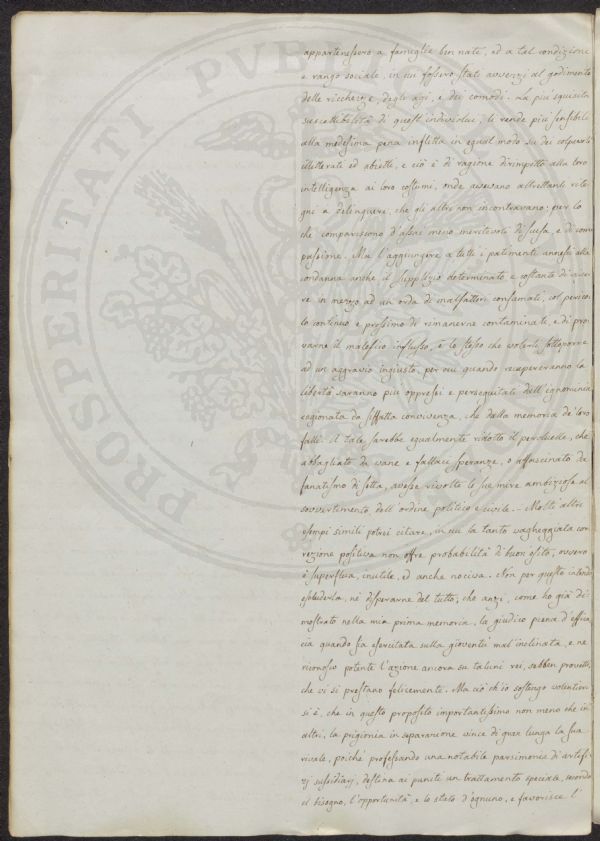 appartenessero a famiglie ben nate, ed a tal condizione
e rango sociale, in cui fossero stati avvezzi al godimento
delle ricchezze, degli agi, e dei comodi. La più squisita
suscettibilità di questi individui, li rende più sensibili
alla medesima pena inflitta in egual modo su dei colpevoli
illetterati ed abietti, e ciò è di ragione dirimpetto alla loro
intelligenza ai loro costumi, onde avevano altrettanti rite-
gni a delinquere, che gli altri non incontravano; per lo
chè compariscono d'assai meno meritevoli di scusa, e di com
passione. Ma l'aggiungere a tutti i patimenti annessi alla
condanna anche il supplizio determinato e costante di vive-
re in mezzo ad un orda di malfattori consumati, col perico-
lo continuo e prossimo di rimanerne contaminati, e di pro-
varne il malefico influsso, è lo stesso che volerli sottoporre
ad un aggravio ingiusto, per cui quando recupereranno la
libertà saranno più oppressi e perseguitati dell'ignominia
cagionata da siffatta convivenza, che dalla memoria de' loro
falli. A tale sarebbe egualmente ridotto il perduelle, che
abbagliato da vane e fallaci speranze, o affascinato da
fanatismo di setta, avesse rivolte le sue mire ambiziose al
sovvertimento dell'ordine politico e civile. - Molti altri
esempi simili potrei citare, in cui la tanto vagheggiata cor
rezione positiva non offre probabilità di buon esito, ovvero
è superflua, inutile, ed anche nociva. Non per questo intendo
escluderla, nè disperarne del tutto; che anzi, come ho già di-
mostrato nella mia prima memoria, la giudico piena d'effica
cia quando sia esercitata sulla gioventù mal'inclinata, e ne
riconosco potente l'azione ancora su taluni rei, sebben provetti,
che vi si prestano felicemente. Ma ciò ch'io sostengo volentieri
si è, che in questo proposito importantissimo non meno che in
altri, la prigionia in separazione vince di gran lunga la sua
rivale, poichè professando una notabile parsimonia di artefi-
zj sussidiarj, destina ai puniti un trattamento speciale, secondo
il bisogno, l'opportunità, e lo stato d'ognuno, e favorisce l'
PROSPERITATI PVBLICAE